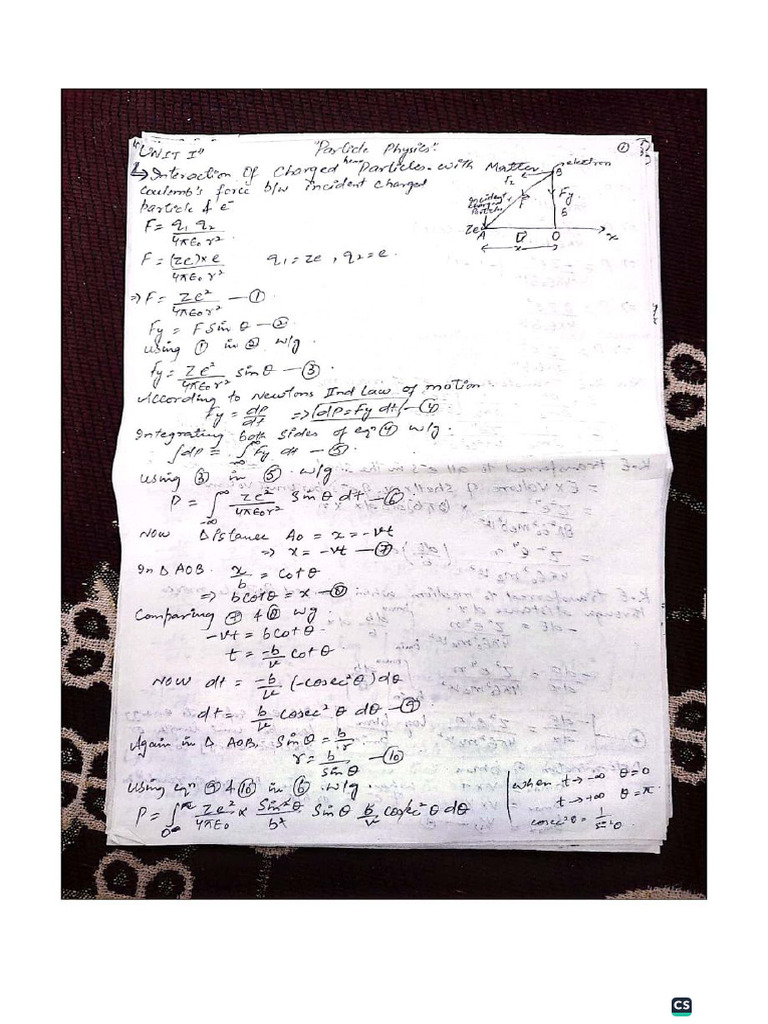 "UNIT I" "Particle Physics" ①
↳ Interaction Of Charged heavy Particles with Matter
Coulomb's force b/w incident charged
particle & e⁻
electron
B
F₂
F
Fy
b
Incident charged Particle
Ze
A
O
x
x
F = q₁ q₂ / 4πε₀ r²
F = (Ze)×e / 4πε₀ r² q₁ = Ze , q₂ = e
⇒ F = Ze² / 4πε₀ r² — ①
Fy = F Sin θ — ②
using ① in ② w/g
Fy = Ze² / 4πε₀ r² sin θ — ③
According to Newtons IInd Law of motion
Fy = dP/dt ⇒ dP = Fy dt — ④
Integrating both sides of eqⁿ ④ w/g.
∫dP = ∫_{-∞}^{∞} Fy dt — ⑤
using ③ in ⑤ w/g
P = ∫_{-∞}^{∞} Ze² / 4πε₀ r² Sin θ dt — ⑥
Now Distance Ao = x = -vt
⇒ x = -vt — ⑦
In Δ AOB. x/b = Cot θ
⇒ b Cot θ = x — ⑧
Comparing ⑦ & ⑧ w/g.
-vt = b Cot θ
t = -b/v Cot θ
Now dt = -b/v (-Cosec² θ) dθ
dt = b/v Cosec² θ dθ — ⑨
Again in Δ AOB, Sin θ = b/r
r = b / sin θ — ⑩
Using eqⁿ ⑨ & ⑩ in ⑥ w/g.
P = ∫_{0}^{π} Ze² / 4πε₀ × Sin² θ / b² Sin θ b/v Cosec² θ dθ
when t → -∞ θ = 0
t → +∞ θ = π.
Cosec² θ = 1 / Sin² θ
CS